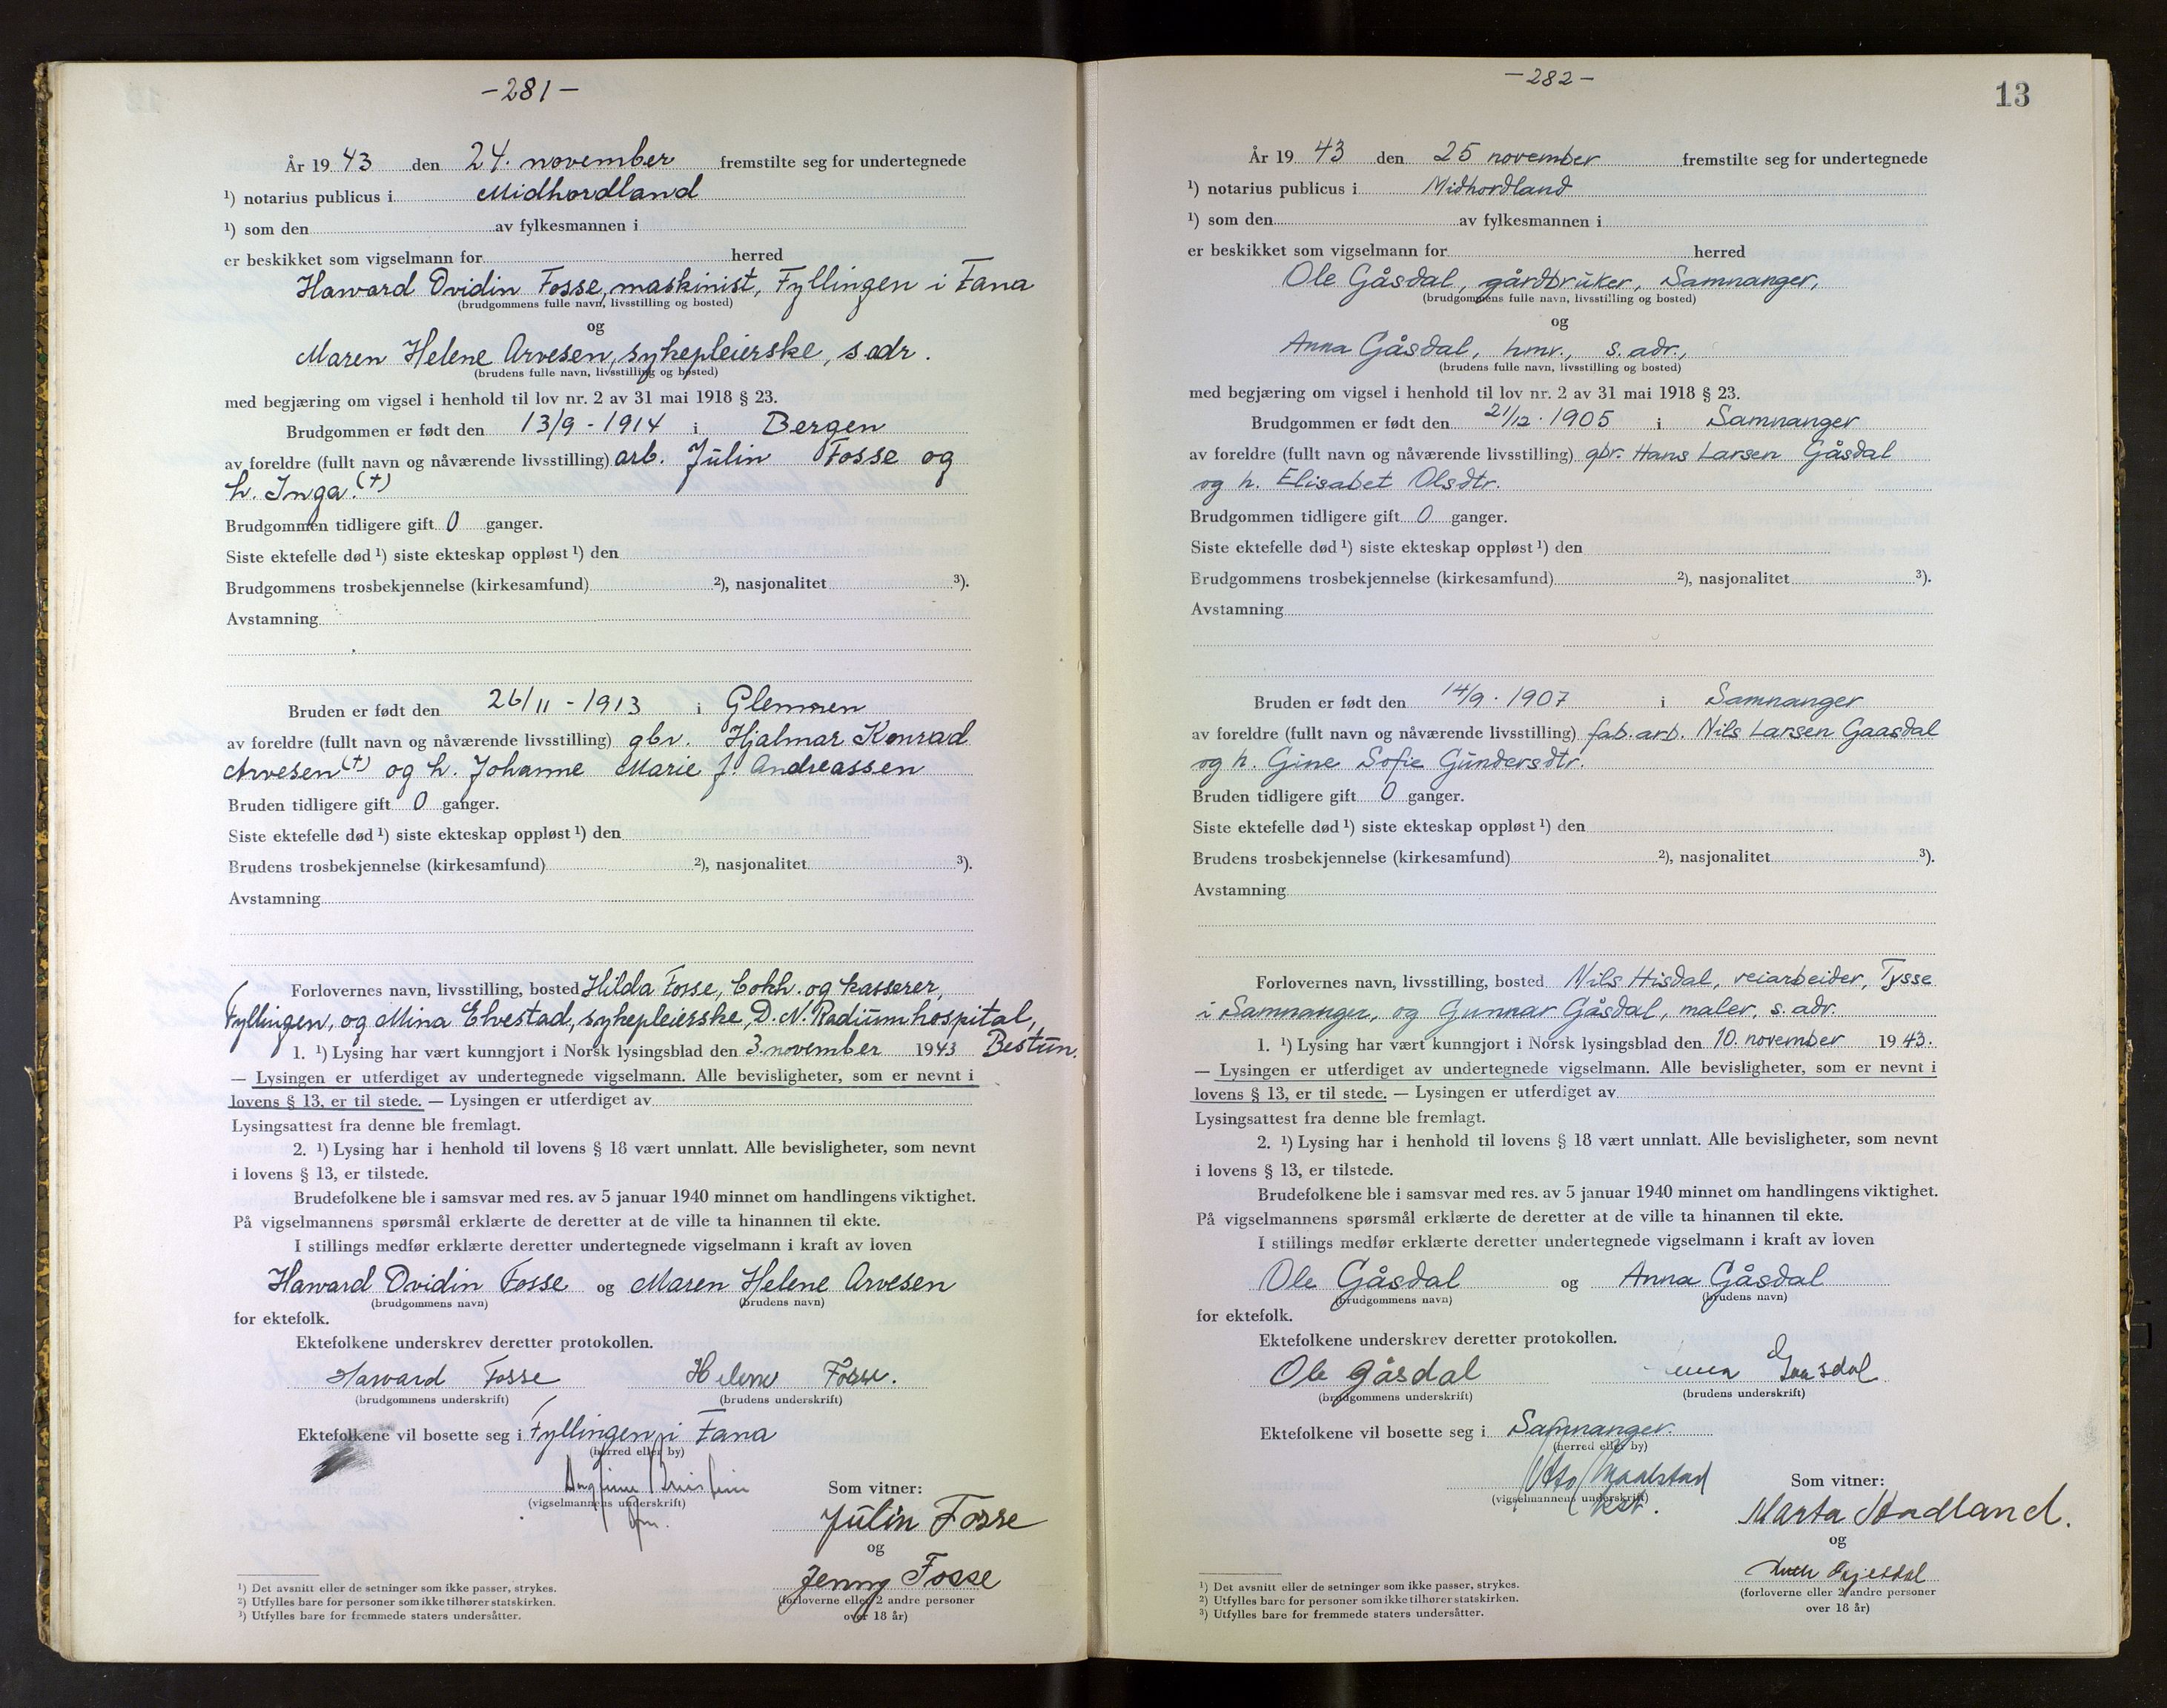 -281-
År 19 43 den 24. november fremstilte seg for undertegnede
¹) notarius publicus i Midhordland
¹) som den av fylkesmannen i
er beskikket som vigselmann for herred
Haward Ovidin Fosse, maskinist, Fyllingen i Fana
(brudgommens fulle navn, livsstilling og bosted)
og
Maren Helene Arvesen, sykepleierske, s. adr.
(brudens fulle navn, livsstilling og bosted)
med begjæring om vigsel i henhold til lov nr. 2 av 31 mai 1918 § 23.
Brudgommen er født den 13/9 - 1914 i Bergen
av foreldre (fullt navn og nåværende livsstilling) arb. Julin Fosse og
h. Inga. (+)
Brudgommen tidligere gift 0 ganger.
Siste ektefelle død ¹) siste ekteskap oppløst ¹) den
Brudgommens trosbekjennelse (kirkesamfund) ²), nasjonalitet ³).
Avstamning
Bruden er født den 26/11 - 1913 i Glemmen
av foreldre (fullt navn og nåværende livsstilling) gbr. Hjalmar Konrad
Arvesen (+) og h. Johanne Marie f. Andreassen
Bruden tidligere gift 0 ganger.
Siste ektefelle død ¹) siste ekteskap oppløst ¹) den
Brudens trosbekjennelse (kirkesamfund) ²), nasjonalitet ³).
Avstamning
Forlovernes navn, livsstilling, bosted Hilda Fosse, bokh. og kasserer,
Fyllingen, og Mina Elvestad, sykepleierske, D. N. Radiumhospital,
1. ¹) Lysing har vært kunngjort i Norsk lysingsblad den 3. november 1943 Bestun.
— Lysingen er utferdiget av undertegnede vigselmann. Alle bevisligheter, som er nevnt i
lovens § 13, er til stede. — Lysingen er utferdiget av
Lysingsattest fra denne ble fremlagt.
2. ¹) Lysing har i henhold til lovens § 18 vært unnlatt. Alle bevisligheter, som nevnt
i lovens § 13, er tilstede.
Brudefolkene ble i samsvar med res. av 5 januar 1940 minnet om handlingens viktighet.
På vigselmannens spørsmål erklærte de deretter at de ville ta hinannen til ekte.
I stillings medfør erklærte deretter undertegnede vigselmann i kraft av loven
Haward Ovidin Fosse og Maren Helene Arvesen
(brudgommens navn) (brudens navn)
for ektefolk.
Ektefolkene underskrev deretter protokollen.
Haward Fosse Helene Fosse.
(brudgommens underskrift) (brudens underskrift)
Ektefolkene vil bosette seg i Fyllingen i Fana
(herred eller by)
(vigselmannens underskrift)
Som vitner:
Julin Fosse
og
Jenny Fosse
(forloverne eller 2 andre personer
over 18 år)
¹) Det avsnitt eller de setninger som ikke passer, strykes.
²) Utfylles bare for personer som ikke tilhører statskirken.
³) Utfylles bare for fremmede staters undersåtter.
-282-
13
År 19 43 den 25 november fremstilte seg for undertegnede
¹) notarius publicus i Midhordland
¹) som den av fylkesmannen i
er beskikket som vigselmann for herred
Ole Gåsdal, gårdbruker, Samnanger,
(brudgommens fulle navn, livsstilling og bosted)
og
Anna Gåsdal, hmv., s. adr.,
(brudens fulle navn, livsstilling og bosted)
med begjæring om vigsel i henhold til lov nr. 2 av 31 mai 1918 § 23.
Brudgommen er født den 21/12 · 1905 i Samnanger
av foreldre (fullt navn og nåværende livsstilling) gbr. Hans Larsen Gåsdal
og h. Elisabet Olsdtr.
Brudgommen tidligere gift 0 ganger.
Siste ektefelle død ¹) siste ekteskap oppløst ¹) den
Brudgommens trosbekjennelse (kirkesamfund) ²), nasjonalitet ³).
Avstamning
Bruden er født den 14/9 · 1907 i Samnanger
av foreldre (fullt navn og nåværende livsstilling) fab. arb. Nils Larsen Gaasdal
og h. Gine Sofie Gundersdtr.
Bruden tidligere gift 0 ganger.
Siste ektefelle død ¹) siste ekteskap oppløst ¹) den
Brudens trosbekjennelse (kirkesamfund) ²), nasjonalitet ³).
Avstamning
Forlovernes navn, livsstilling, bosted Nils Hisdal, veiarbeider, Tysse
i Samnanger, og Gunnar Gåsdal, maler, s. adr.
1. ¹) Lysing har vært kunngjort i Norsk lysingsblad den 10. november 1943.
— Lysingen er utferdiget av undertegnede vigselmann. Alle bevisligheter, som er nevnt i
lovens § 13, er til stede. — Lysingen er utferdiget av
Lysingsattest fra denne ble fremlagt.
2. ¹) Lysing har i henhold til lovens § 18 vært unnlatt. Alle bevisligheter, som nevnt
i lovens § 13, er tilstede.
Brudefolkene ble i samsvar med res. av 5 januar 1940 minnet om handlingens viktighet.
På vigselmannens spørsmål erklærte de deretter at de ville ta hinannen til ekte.
I stillings medfør erklærte deretter undertegnede vigselmann i kraft av loven
Ole Gåsdal og Anna Gåsdal
(brudgommens navn) (brudens navn)
for ektefolk.
Ektefolkene underskrev deretter protokollen.
Ole Gåsdal Gaasdal
(brudgommens underskrift) (brudens underskrift)
Ektefolkene vil bosette seg i Samnanger.
(herred eller by)
Otto
(vigselmannens underskrift)
Som vitner:
Marta
og
(forloverne eller 2 andre personer
over 18 år)
¹) Det avsnitt eller de setninger som ikke passer, strykes.
²) Utfylles bare for personer som ikke tilhører statskirken.
³) Utfylles bare for fremmede staters undersåtter.